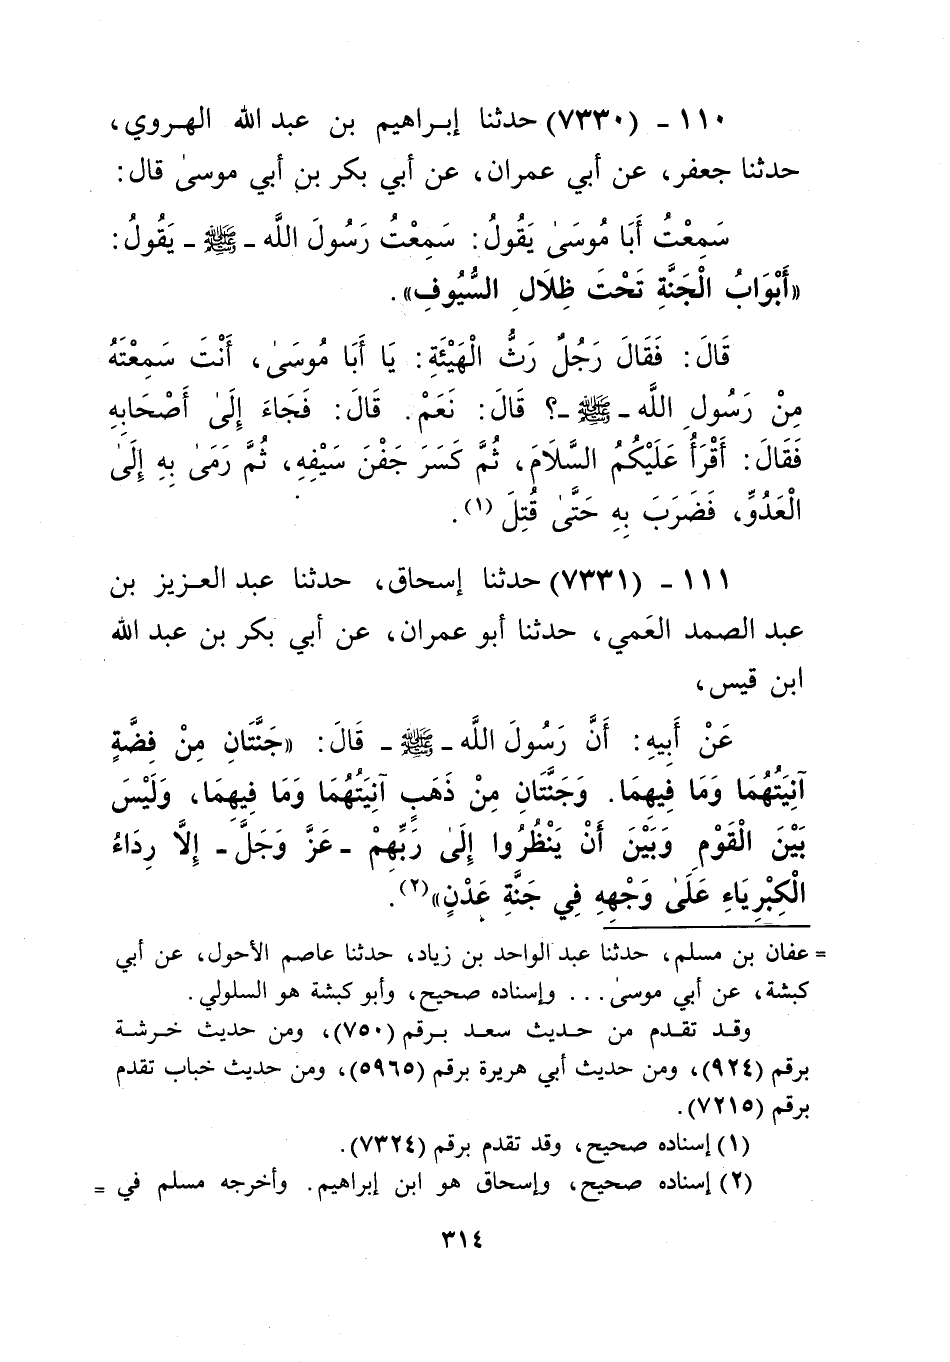 ١١٠ ـ (٧٣٣٠) حدثنا إبـراهيم بن عبد الله الهـروي،
حدثنا جعفر، عن أبي عمران، عن أبي بكر بن أبي موسىٰ قال:
سَمِعْتُ أَبَا مُوسَىٰ يَقُولُ: سَمِعْتُ رَسُولَ اللَّه ـ ﷺ ـ يَقُولُ:
«أَبْوَابُ الْجَنَّةِ تَحْتَ ظِلَالِ السُّيُوفِ».
قَالَ: فَقَالَ رَجُلٌ رَثُّ الْهَيْئَةِ: يَا أَبَا مُوسَىٰ، أَنْتَ سَمِعْتَهُ
مِنْ رَسُولِ اللَّه ـ ﷺ ـ؟ قَالَ: نَعَمْ. قَالَ: فَجَاءَ إِلَىٰ أَصْحَابِهِ
فَقَالَ: أَقْرَأُ عَلَيْكُمُ السَّلَامَ، ثُمَّ كَسَرَ جَفْنَ سَيْفِهِ، ثُمَّ رَمَىٰ بِهِ إِلَىٰ
الْعَدُوِّ، فَضَرَبَ بِهِ حَتَّىٰ قُتِلَ (١).
١١١ ـ (٧٣٣١) حدثنا إسحاق، حدثنا عبد العـزيز بن
عبد الصمد العَمي، حدثنا أبو عمران، عن أبي بكر بن عبد الله
ابن قيس،
عَنْ أَبِيهِ: أَنَّ رَسُولَ اللَّه ـ ﷺ ـ قَالَ: «جَنَّتَانِ مِنْ فِضَّةٍ
آنِيَتُهُمَا وَمَا فِيهِمَا. وَجَنَّتَانِ مِنْ ذَهَبٍ آنِيَتُهُمَا وَمَا فِيهِمَا، وَلَيْسَ
بَيْنَ الْقَوْمِ وَبَيْنَ أَنْ يَنْظُرُوا إِلَىٰ رَبِّهِمْ ـ عَزَّ وَجَلَّ ـ إِلَّا رِدَاءُ
الْكِبْرِيَاءِ عَلَىٰ وَجْهِهِ فِي جَنَّةِ عَدْنٍ»(٢).
= عفان بن مسلم، حدثنا عبد الواحد بن زياد، حدثنا عاصم الأحول، عن أبي
كبشة، عن أبي موسىٰ... وإسناده صحيح، وأبو كبشة هو السلولي.
وقـد تقدم من حـديث سعـد بـرقم (٧٥٠)، ومن حديث خـرشـة
برقم (٩٢٤)، ومن حديث أبي هريرة برقم (٥٩٦٥)، ومن حديث خباب تقدم
برقم (٧٢١٥).
(١) إسناده صحيح، وقد تقدم برقم (٧٣٢٤).
(٢) إسناده صحيح، وإسحاق هو ابن إبراهيم. وأخرجه مسلم في =
٣١٤